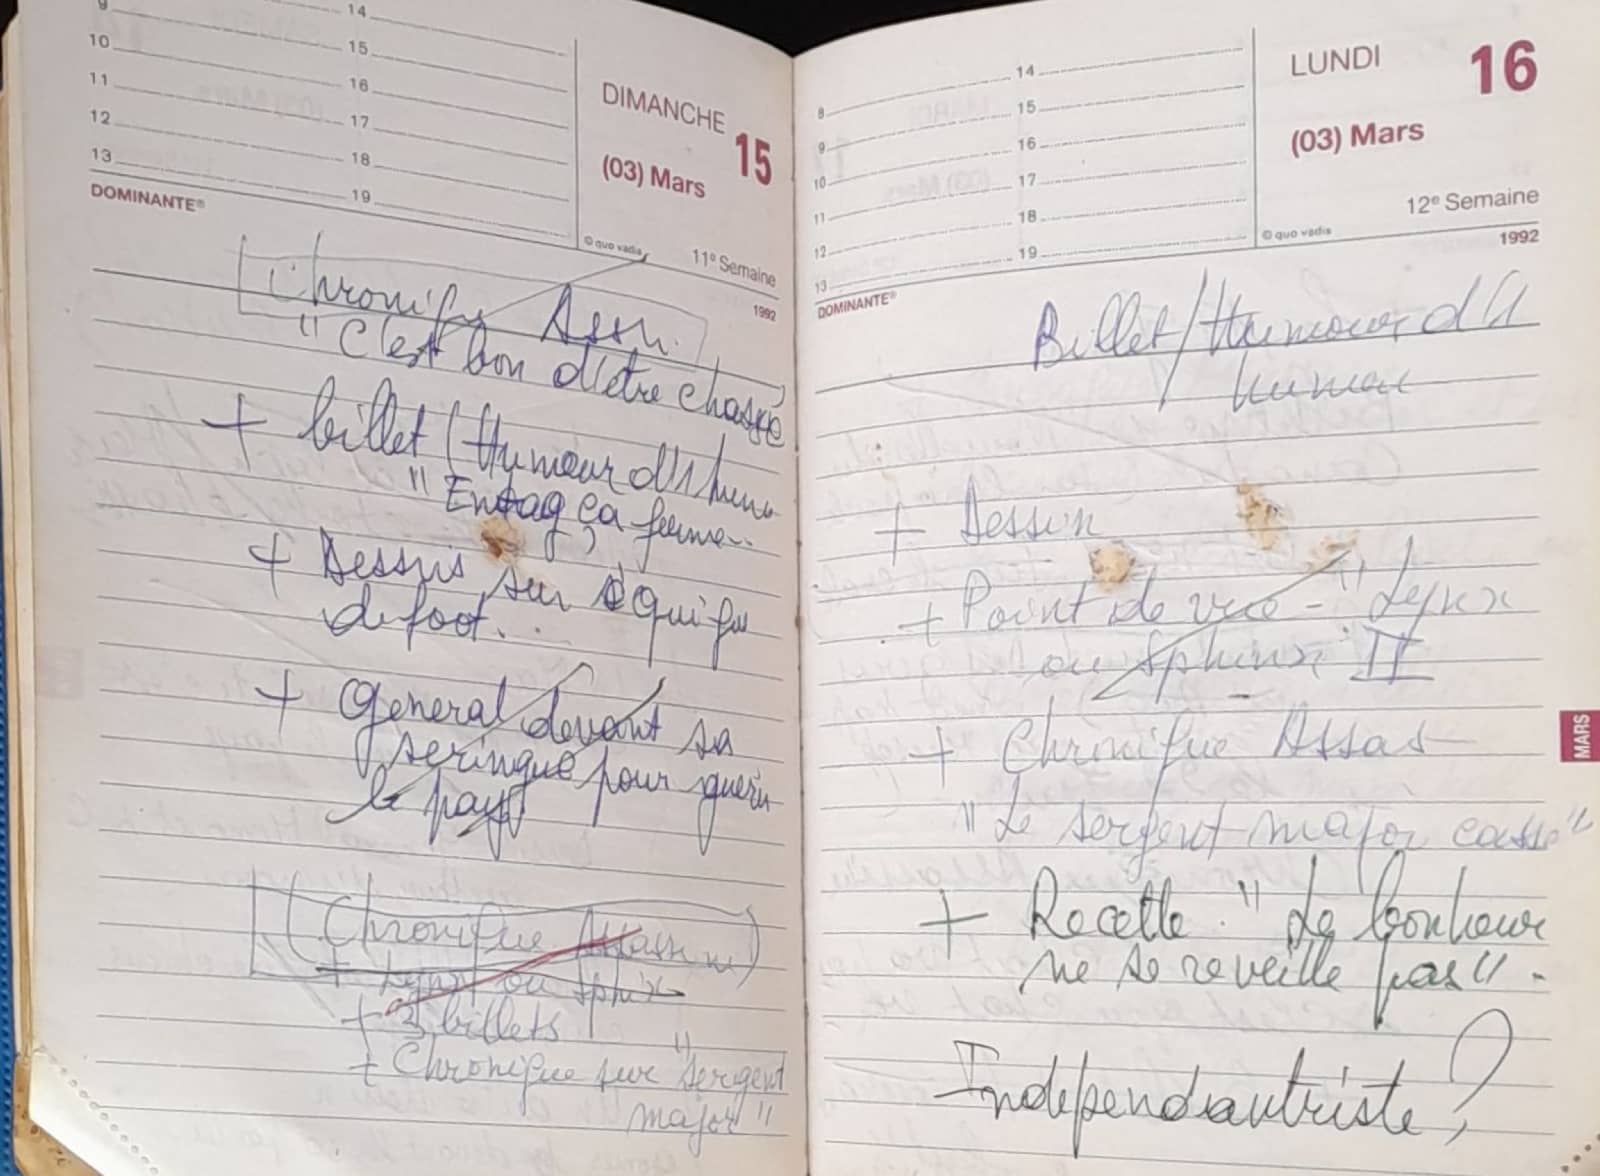 9 14
10 15
11 16
12 17
13 18
19
DIMANCHE 15
(03) Mars
DOMINANTE®
© quo vadis
11e Semaine
1992
Chronique Assn.
"C'est bon d'être chassé
+ billet / Humour d'1 hum
" Entag ça ferme..
+ Dessins sur équipe
de foot.
+ General devant sa
seringue pour guérir
le pays
(Chronique Assassin)
+ Lynx ou Sphinx
+ 3 billets
+ Chronique sur "sergent
major"
8 14
9 15
10 16
11 17
12 18
13 19
LUNDI 16
(03) Mars
12e Semaine
© quo vadis
1992
DOMINANTE®
Billet / Humour d'1
humeur
+ Dessin
+ Point de vue - "Lynx
ou Sphinx" II
+ Chronique Assas
"Le sergent major casse"
+ Recette. "Le bonheur
ne se reveille pas".
Independautriste ?
MARS